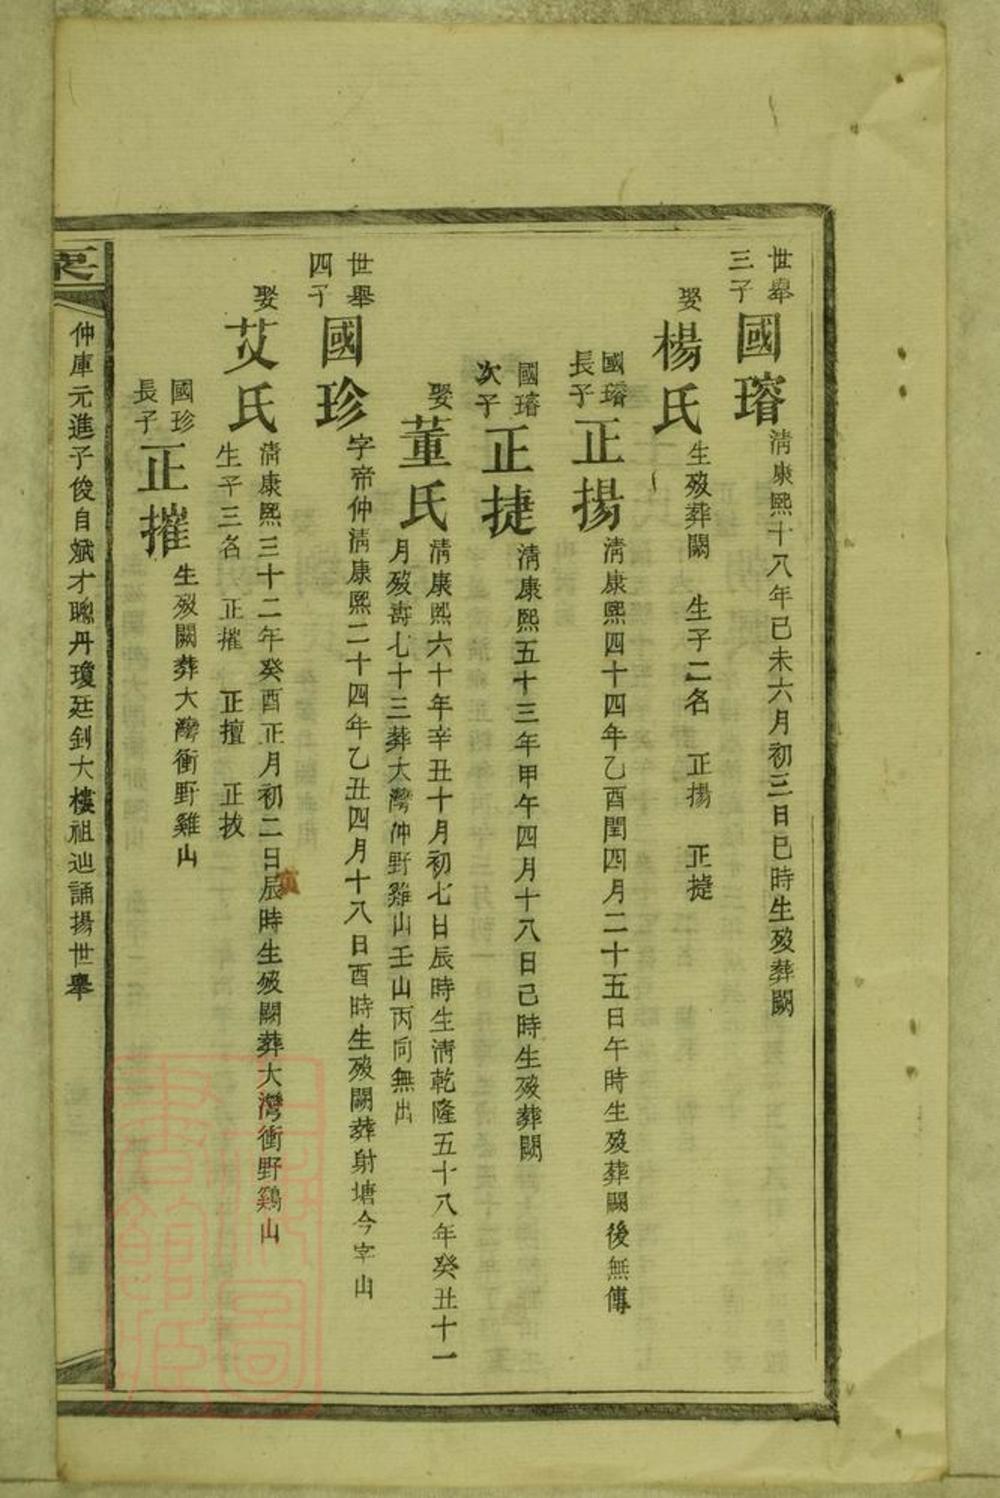 世舉
三子
國瑢
清康熙十八年己未六月初三日巳時生歿葬闕
娶楊氏
生歿葬闕 生子二名 正揚 正捷
國瑢
長子
正揚
清康熙四十四年乙酉閏四月二十五日午時生歿葬闕後無傳
國瑢
次子
正捷
清康熙五十三年甲午四月十八日己時生歿葬闕
娶董氏
清康熙六十年辛丑十月初七日辰時生清乾隆五十八年癸丑十一
月歿壽七十三葬大灣仲野雞山壬山丙向無出
世舉
四子
國珍
字帝仲清康熙二十四年乙丑四月十八日酉時生歿闕葬射塘今宰山
娶艾氏
清康熙三十二年癸酉正月初二日辰時生歿闕葬大灣衝野鷄山
寅
生子三名 正摧 正擅 正拔
國珍
長子
正摧
生歿闕葬大灣衝野雞山
仲庫元進子俊自斌才聰丹瓊廷釗大樓祖辿誦揚世舉